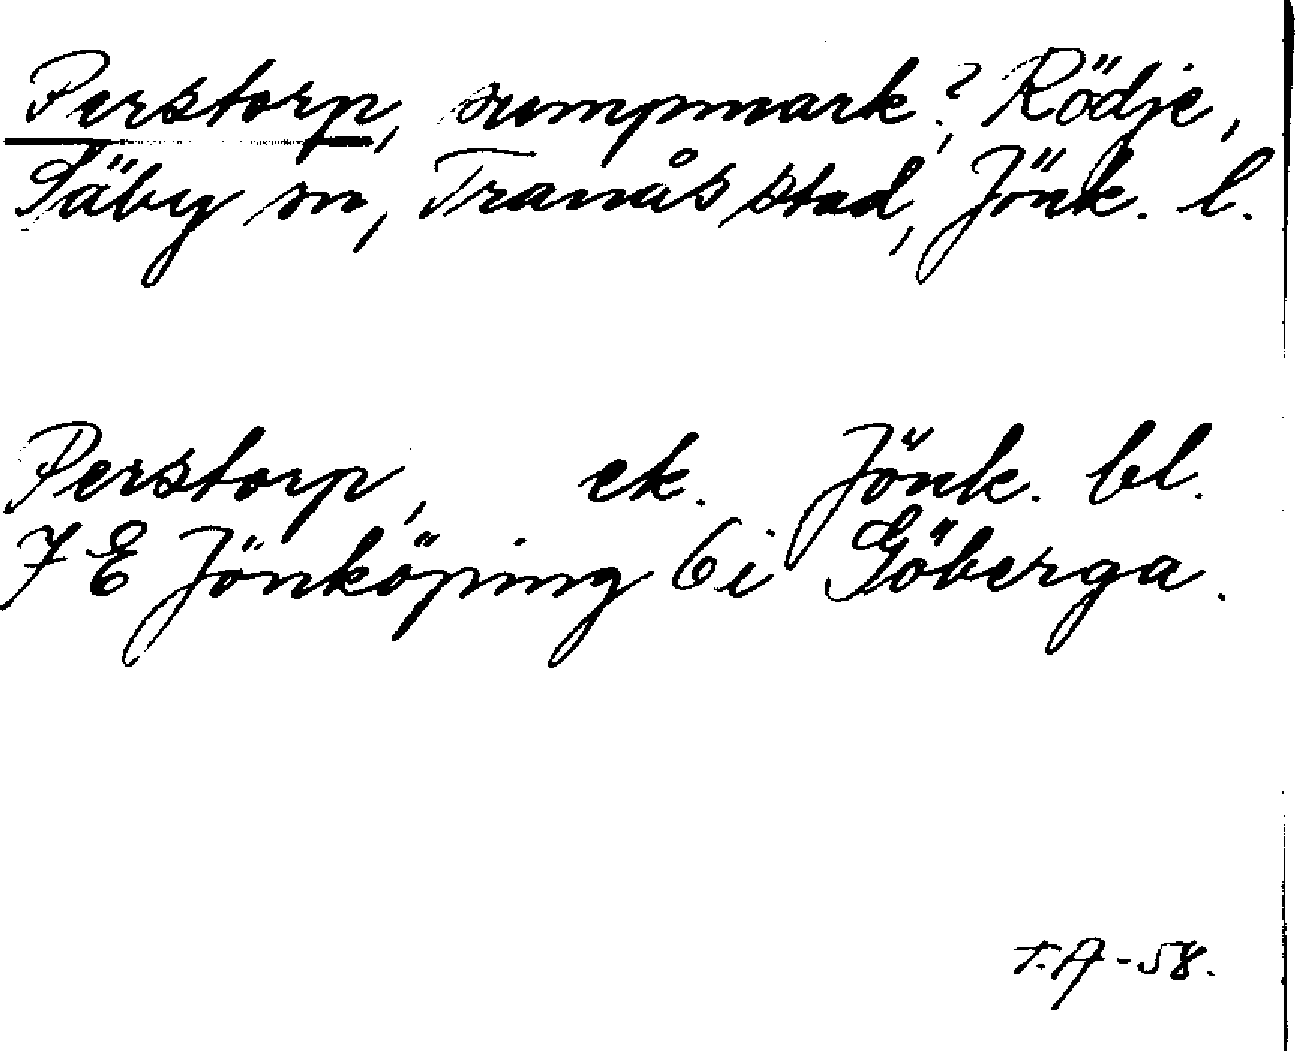 Perstorp, sumpmark?, Rödje,
Säby sn, Tranås stad, Jönk. l.
Perstorp, ek. Jönk. bl.
7 E Jönköping 6i Göberga.
T.A-58.